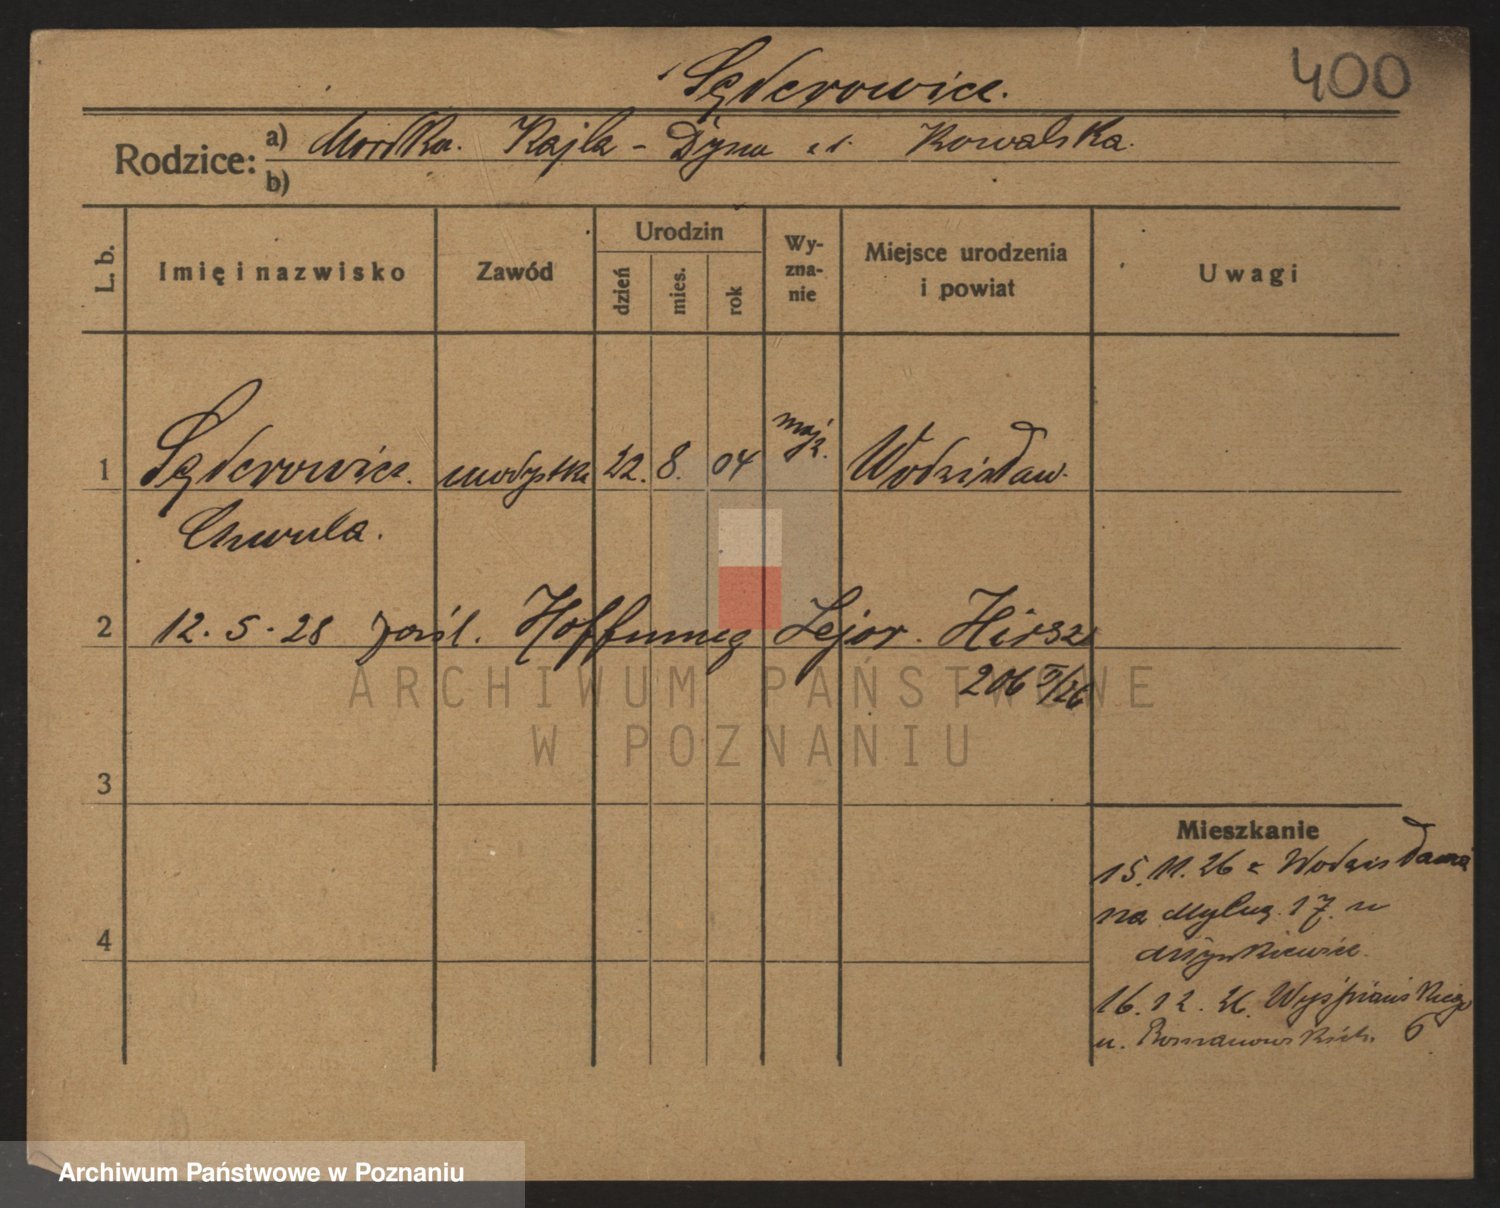 400
Sęderowicz.
Rodzice: a) Mordka. Kajla - Dyna z d. Kowalska.
b)
L. b. Imię i nazwisko Zawód Urodzin dzień mies. rok Wy-zna-nie Miejsce urodzenia i powiat Uwagi
1 Sęderowicz. modystka 22. 8. 04 mojż. Wodzisław.
Chwula.
2 12. 5. 28 zaśl. Hoffnung Lejor. Hirsz
206 V/26
3
Mieszkanie
15. 11. 26 z Wodzisławia
na 17. u
4
16. 12. 26. Wyspiańskiego
u. Romanowskich. 6
ARCHIWUM PAŃSTWOWE
W POZNANIU
Archiwum Państwowe w Poznaniu